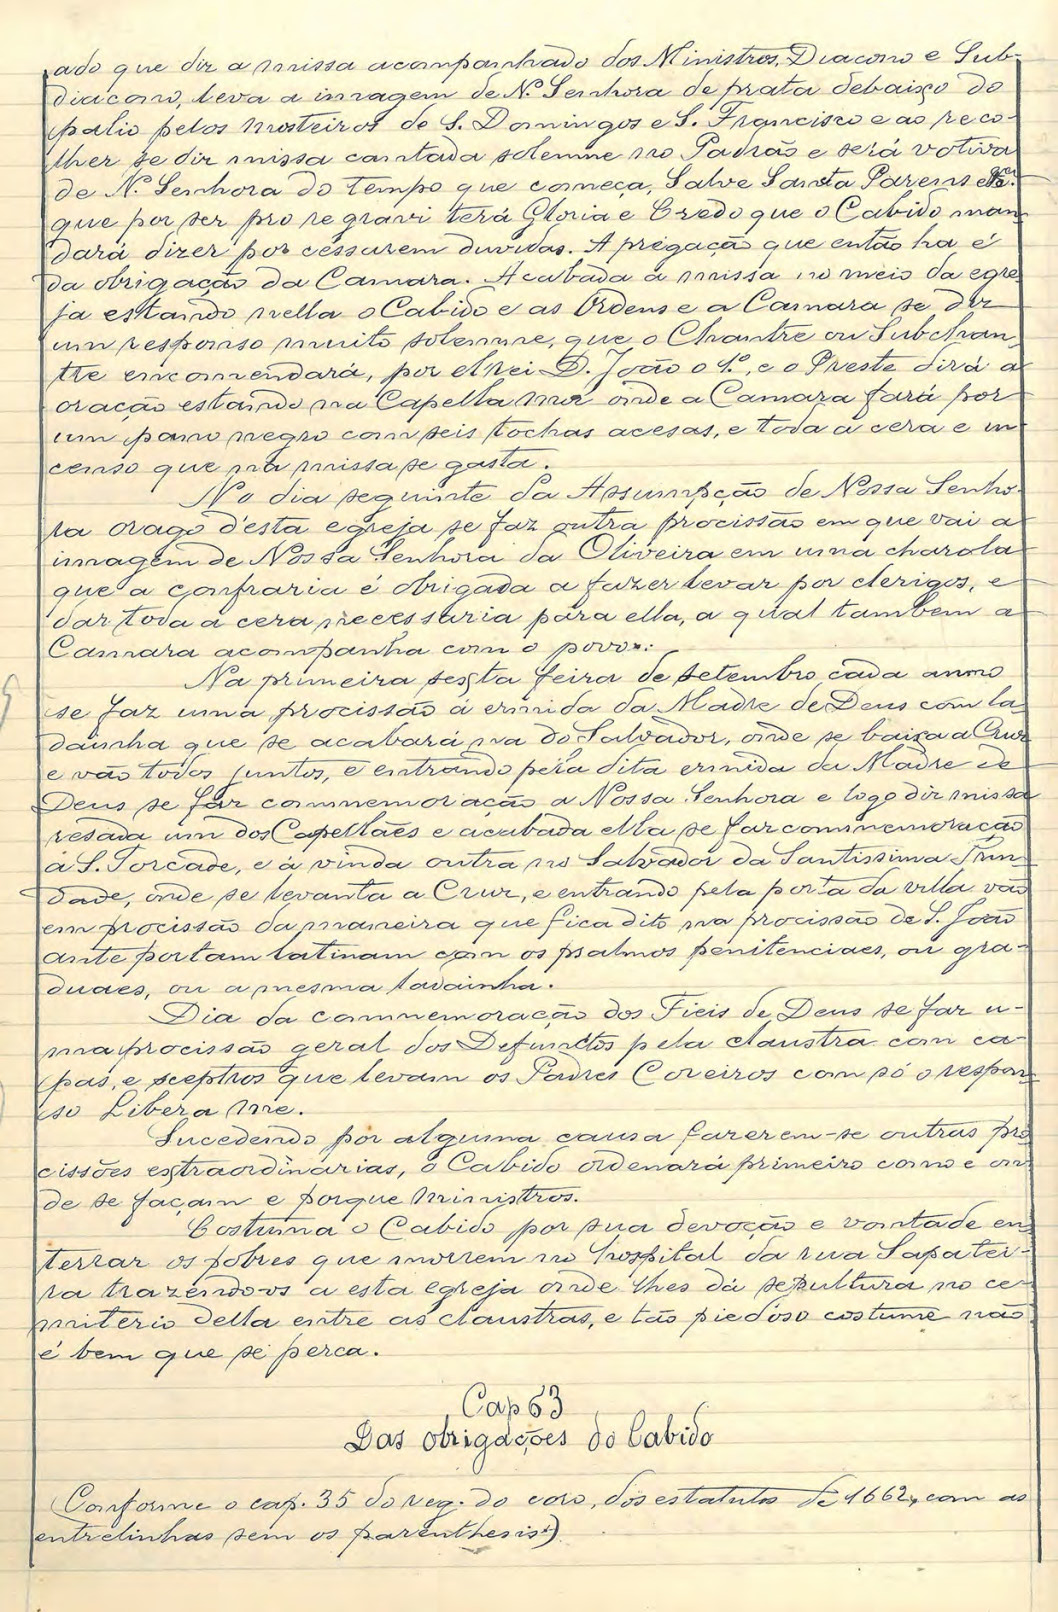 ado que diz a missa acompanhado dos Ministros, Diacono e Sub-
diacono, leva a imagem de N.ª Senhora de prata debaixo do
palio pelos mosteiros de S. Domingos e S. Francisco e ao reco-
lher se diz missa cantada solemne no Padrão e será votiva
de N.ª Senhora do tempo que começa, Salve Sancta Parens etc.
que por ser pro re gravi terá Gloria e Credo que o Cabido man
dará dizer por cessarem duvidas. A prégação que então ha é
da obrigação da Camara. Acabada a missa no meio da egre
ja estando nella o Cabido e as Ordens e a Camara se diz
um responso muito solemne, que o Chantre ou Subchan
tre encomendará, por el rei D. João o 1.º, e o Preste dirá a
oração estando na Capella mór onde a Camara fará por
um pano negro com seis tochas acesas, e toda a cera e in
censo que na missa se gasta.
No dia seguinte da Assumpção de Nossa Senho
ra orago d'esta egreja se faz outra procissão em que vai a
imagem de Nossa Senhora da Oliveira em uma charola
que a confraria é obrigada a fazer levar por clerigos, e
dar toda a cera necessaria para ella, a qual tambem a
Camara acompanha com o povo.
Na primeira sexta feira de setembro cada anno
se faz uma procissão á ermida da Madre de Deus com la
dainha que se acabará na do Salvador, onde se baixa a Cruz
e vão todos juntos, e entrando pela dita ermida da Madre de
Deus se faz commemoração a Nossa Senhora e logo diz missa
resada um dos Capellães e acabada ella se faz commemoração
á S. Torcade, e á vinda outra no Salvador da Santissima Trin
dade, onde se levanta a Cruz, e entrando pela porta da villa vão
em procissão da maneira que fica dito na procissão de S. João
ante portam latinam com os psalmos penitenciaes, ou gra-
duaes, ou a mesma ladainha.
Dia da commemoração dos Fieis de Deus se faz u-
ma procissão geral dos Defunctos pela claustra com ca-
pas, e sceptros que levam os Padres Coreiros com só o respon
so Libera me.
Sucedendo por alguma causa fazerem-se outras pro
cissões extraordinarias, o Cabido ordenará primeiro como e on
de se façam e porque ministros.
Costuma o Cabido por sua devoção e vontade en
terrar os pobres que morrem no hospital da rua Sapatei-
ra trazendo-os a esta egreja onde lhes dá sepultura no ce-
miterio della entre as claustras, e tão piedoso costume não
é bem que se perca.
Cap 63
Das obrigações do Cabido
(Conforme o cap. 35 do reg. do coro, dos estatutos de 1662, com as
entrelinhas sem os parenthesis)